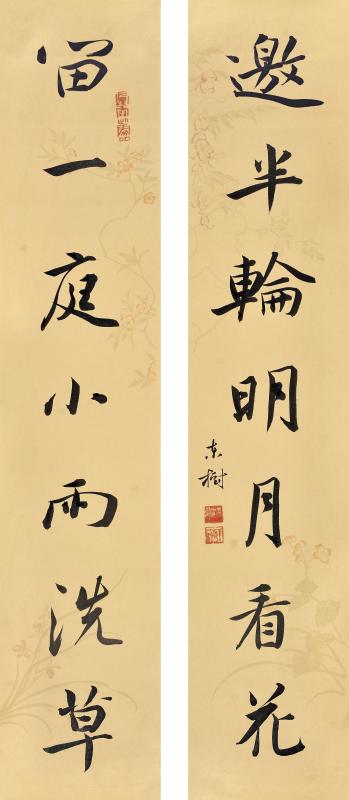 邀半輪明月看花
東樹
留一庭小雨洗草